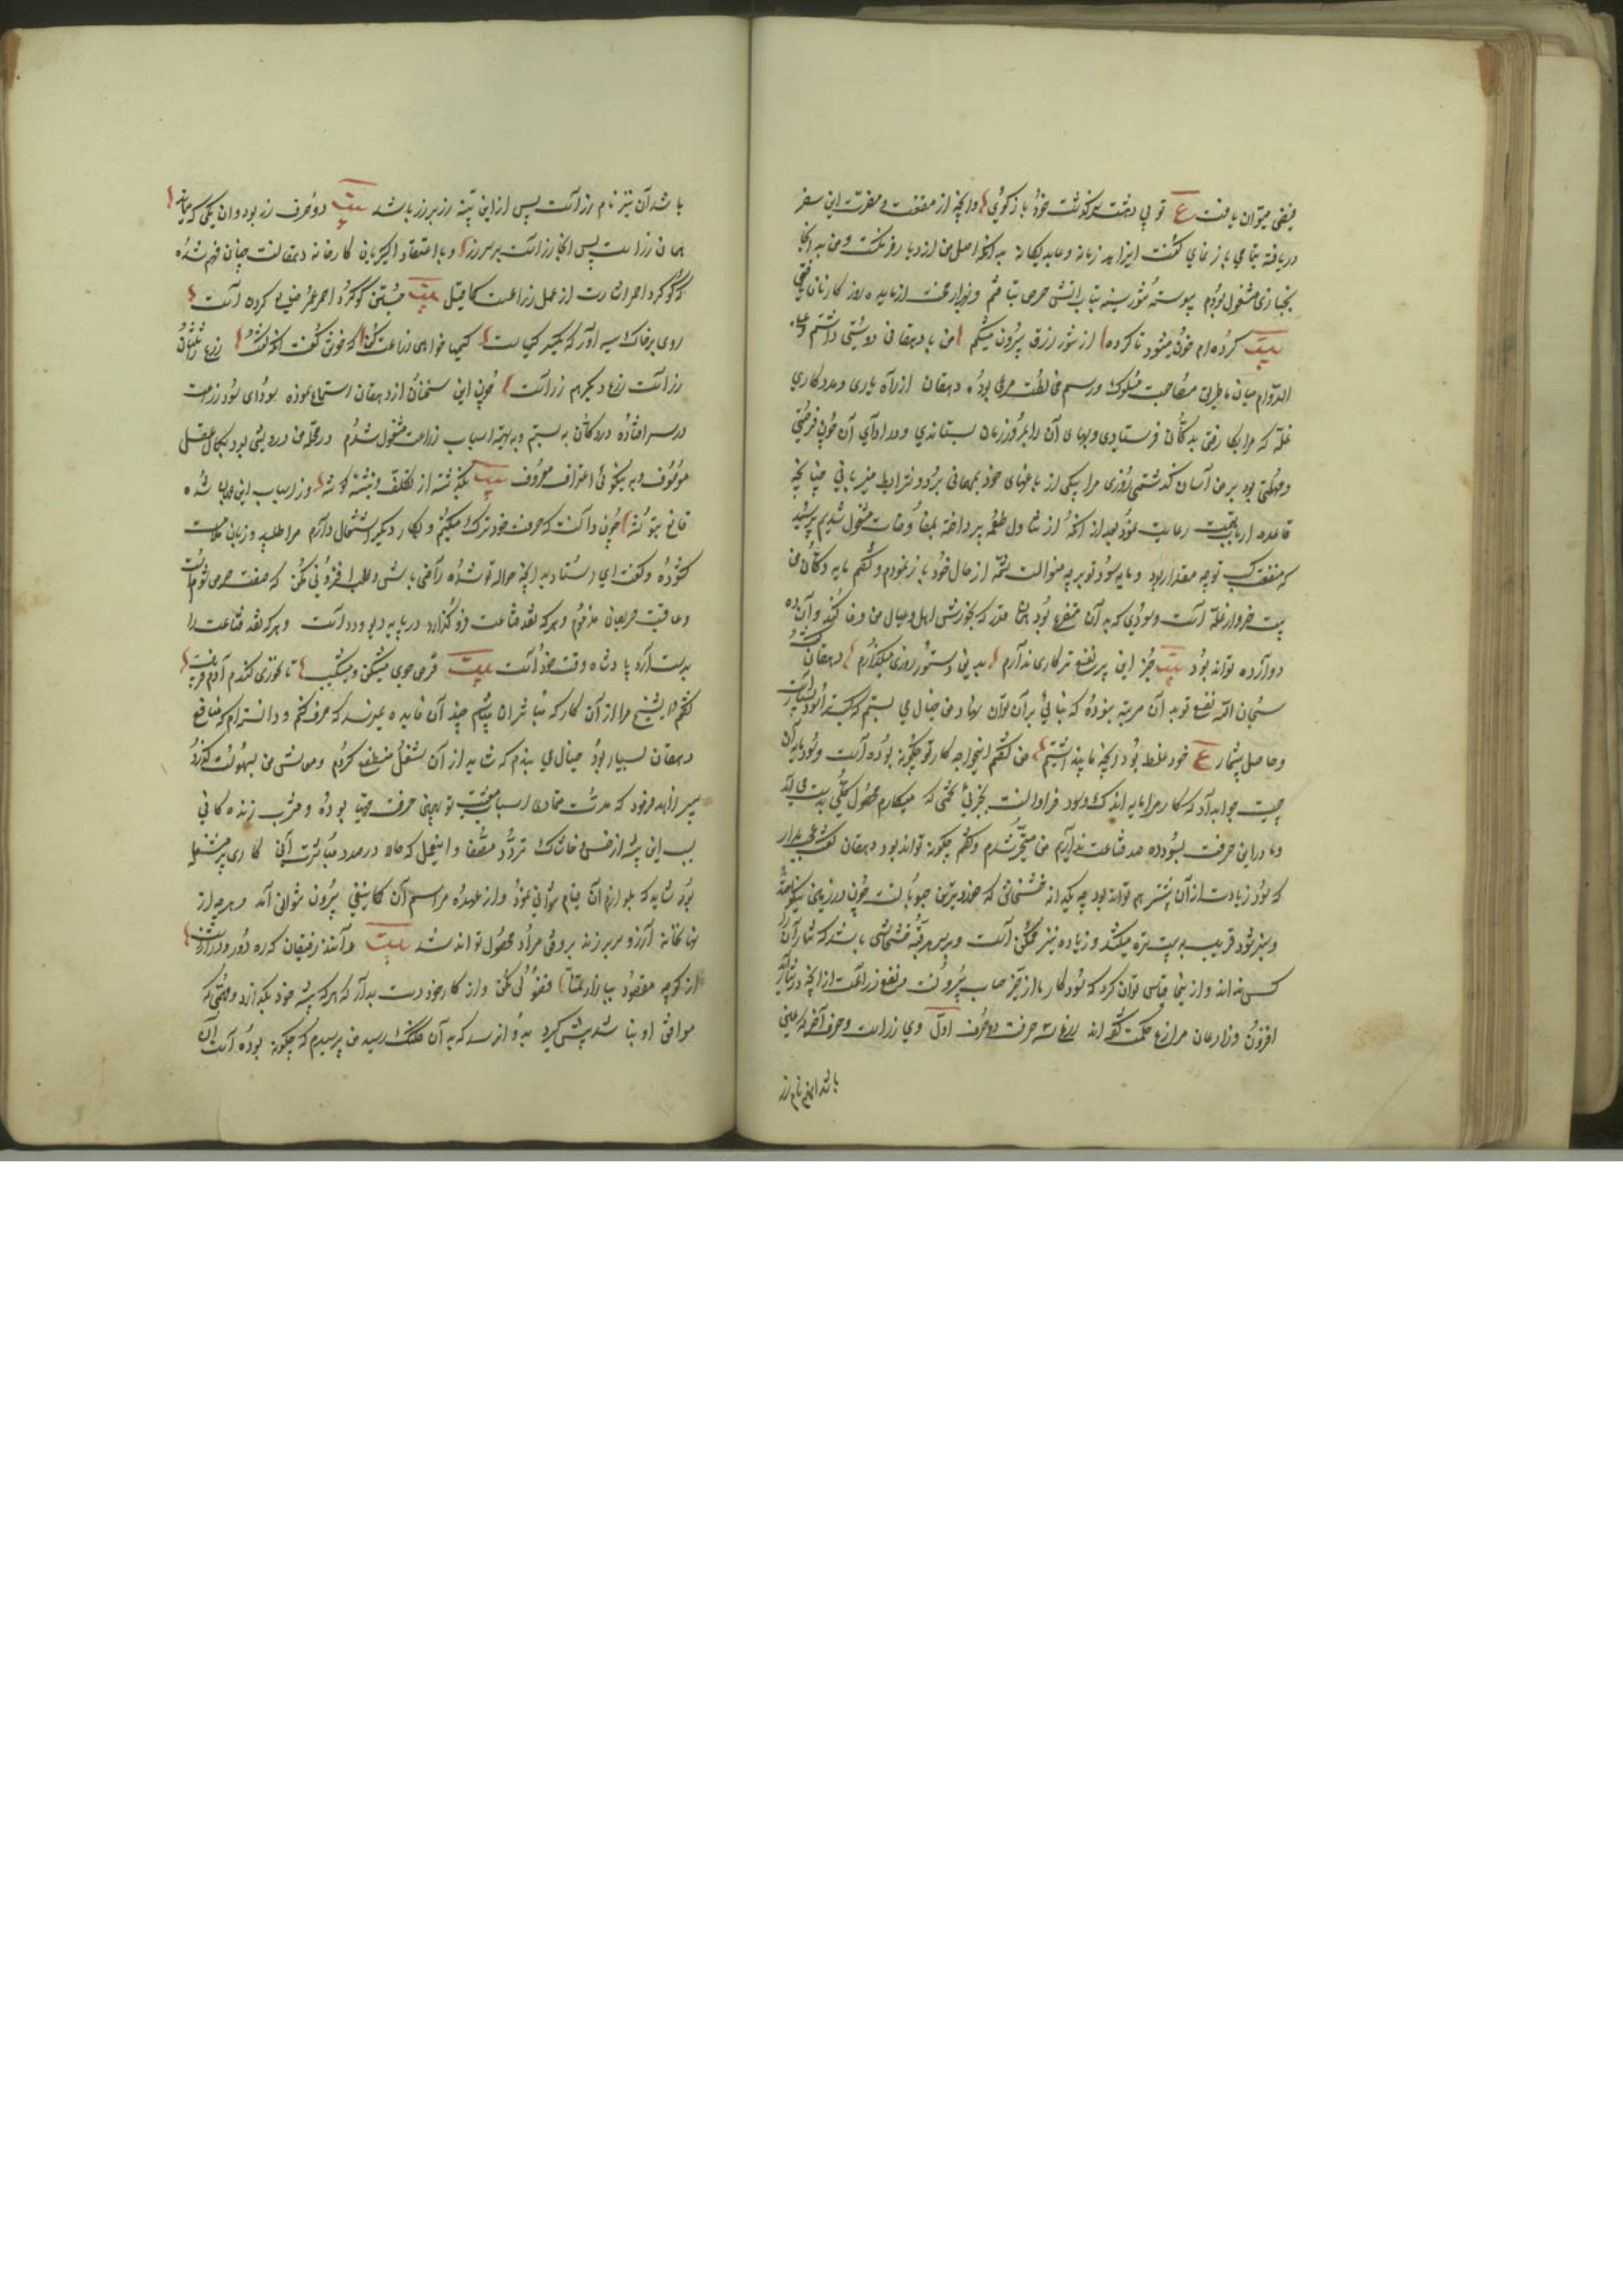 فیضی میتوان یافت ع تو پی دهشت سرگذشت خود بازگوی و آنچه از منفعت و مضرت این سفر
دریافته بتمامی باز نمای گفت ای زاهد زمانه و عابد یگانه بدانکه اصل من از دیار فرنگست و من به آنجا
بخبازی مشغول بودم پیوسته تنور سینه بتاب آتش حرص تافتم و بهزار محنت از مایده روزگار نان
بیت کرده ام خون میشود تا گرده از تنور رزق بیرون میکشم من با دهقانی دوستی داشتم و علی
الدوام میان ما طریق مصاحبت مسلوک و رسم مخالطت مرعی بوده دهقان از راه یاری و مددکاری
غله که مرا بکار رفتی بدکان فرستادی و بهای آن را بمرور زمان بستاندی و در ادای آن چون فرصتی
و مهلتی بود بر من آسان گذشتی روزی مرا بیکی از باغهای خود بمهمانی برد و شرایط میزبانی چنانچه
قاعده ارباب باشد رعایت نمود بعد از آنکه از تناول طعمه پرداخته بمفاوضات مشغول شدیم پرسید
که منفعت کسب تو چه مقدار بود و مایه سود تو بر چه منوالست شمه از حال خود باز نمودم و گفتم مایه دکان من
بیست خروار غله است و سودی که به آن متفرع بود همان قدر که بخورش اهل و عیال من وفا کند و آن ده
دوازده تواند بود بیت جز این پرنفع تر کاری ندارم بدین دستور روزی میگذارم دهقان گفت
سبحان الله نفع تو به آن مرتبه نبوده که بنائی بر آن توان نهاد و من خیال می بستم که کسبت را سود بسیار است
و حاصل بیشمار ع خود غلط بود آنچه ما پنداشتیم من گفتم ای خواجه کار تو چگونه بوده است و سود مایه آن
چیست جواب داد که کار مرا مایه اندک و سود فراوانست بجزئی تخمی که میکارم محصول کلی بدست می آید
و ما در این حرفت بسود ده صد قناعت نداریم من متحیر شدم و گفتم چگونه تواند بود دهقان گفت عجب مدار
که سود زیادت از آن بیشتر هم تواند بود چه یکدانه خشخاش که خوردترین حبوبات است چون در زمین نیکو
و سبز شود قریب به بیست تیره میکشد و زیاده نیز ممکن است و بر سر هر تیره خشخاشی باشد که شمار آن را
کس نداند و از اینجا قیاس توان کرد که سود کار ما از حیز حساب بیرونست منفع زراعت از آنچه در شمار آید
افزون و زارعان مزارع حکمت گفته اند لفظ زرع سه حرفست دو حرف اول وی زر است و حرف آخر که عین
باشد آن هم نام زر
باشد آن نیز نام زر است پس از این پیشه زر بر زر باشد بیت دو حرف زر بود و آن یکی که میماند
همان زر است پس آنجا زر است بر سر زر و با اعتقاد اکسیریان کارخانه دهقانست چنان فهم شده
که گوگرد احمر اشارت از عمل زراعت است کما قیل بیت جستن گوگرد احمر عمر ضایع کردن است
روی بر خاک سیه آور که یکسر کیمیاست کیمیا خواهی زراعت کن که خوش گفت آنکه گفت زرع ثلثان
زر است زرع دیگر هم زر است چون این سخنان از دهقان استماع نموده سودای سود زراعت
در سر افتاده در دکان به بستم و به تهیه اسباب زراعت مشغول شدم در محله من درویشی بود بکمال عقل
موصوف و به نیکوئی اعتراف معروف بیت بگذشته از تکلف و بنشسته گوشه و ز اسباب این جهان شده
قانع بتوشه چون دانست که حرفت خود ترک میکنم و بکار دیگر اشتغال دارم مرا طلبید و زبان ملامت
گشوده و گفت ای استاد به آنچه حواله تو شده راضی باش و طلب افزونی مکن که صفت حرص شوم است
و عاقبت حریصان مذموم و هر که نقد قناعت فرو گذارد در پایه دیو و دد است و هر که نقد قناعت را
بدست آرد پادشاه وقت خود است بیت قرص جوی میشکن و میشکیب تا نخوری گندم آدم فریب
گفتم ای شیخ مرا از آن کار که مباشر آن بودم چندان فایده نمیرسد که صرف کنم و دانسته ام که منافع
دهقان بسیار بود خیال می بندم که شاید از آن شغل منتفع گردم و معاش من بسهولت گذرد
پیر زاهد فرمود که مدت متمادی اسباب معیشت تو بهمین حرفت مهیا بوده و مشرب زندگانی
بسبب این پیشه از خس و خاشاک تردد مصفا و اینعمل که حالا در صدد مباشرت آنی کاری پر مشغله
بود شاید که بلوازم آن قیام نتوانی نمود و از عهده مراسم آن کما ینبغی بیرون نتوانی آمد و هر چه از
نهانخانه آرزو سر بر زند بر وفق مراد محصول نتواند شد بیت در آنند رفیقان که ره دور و دراز است
از کوچه مقصود ببازار تمنا فضولی مکن و از کار خود دست بدار که هر که پیشه خود بگذارد و مهمی که
موافق او نباشد پیش گیرد بدو آن رسد که به آن کلنگ رسید من پرسیدم که چگونه بوده است آن